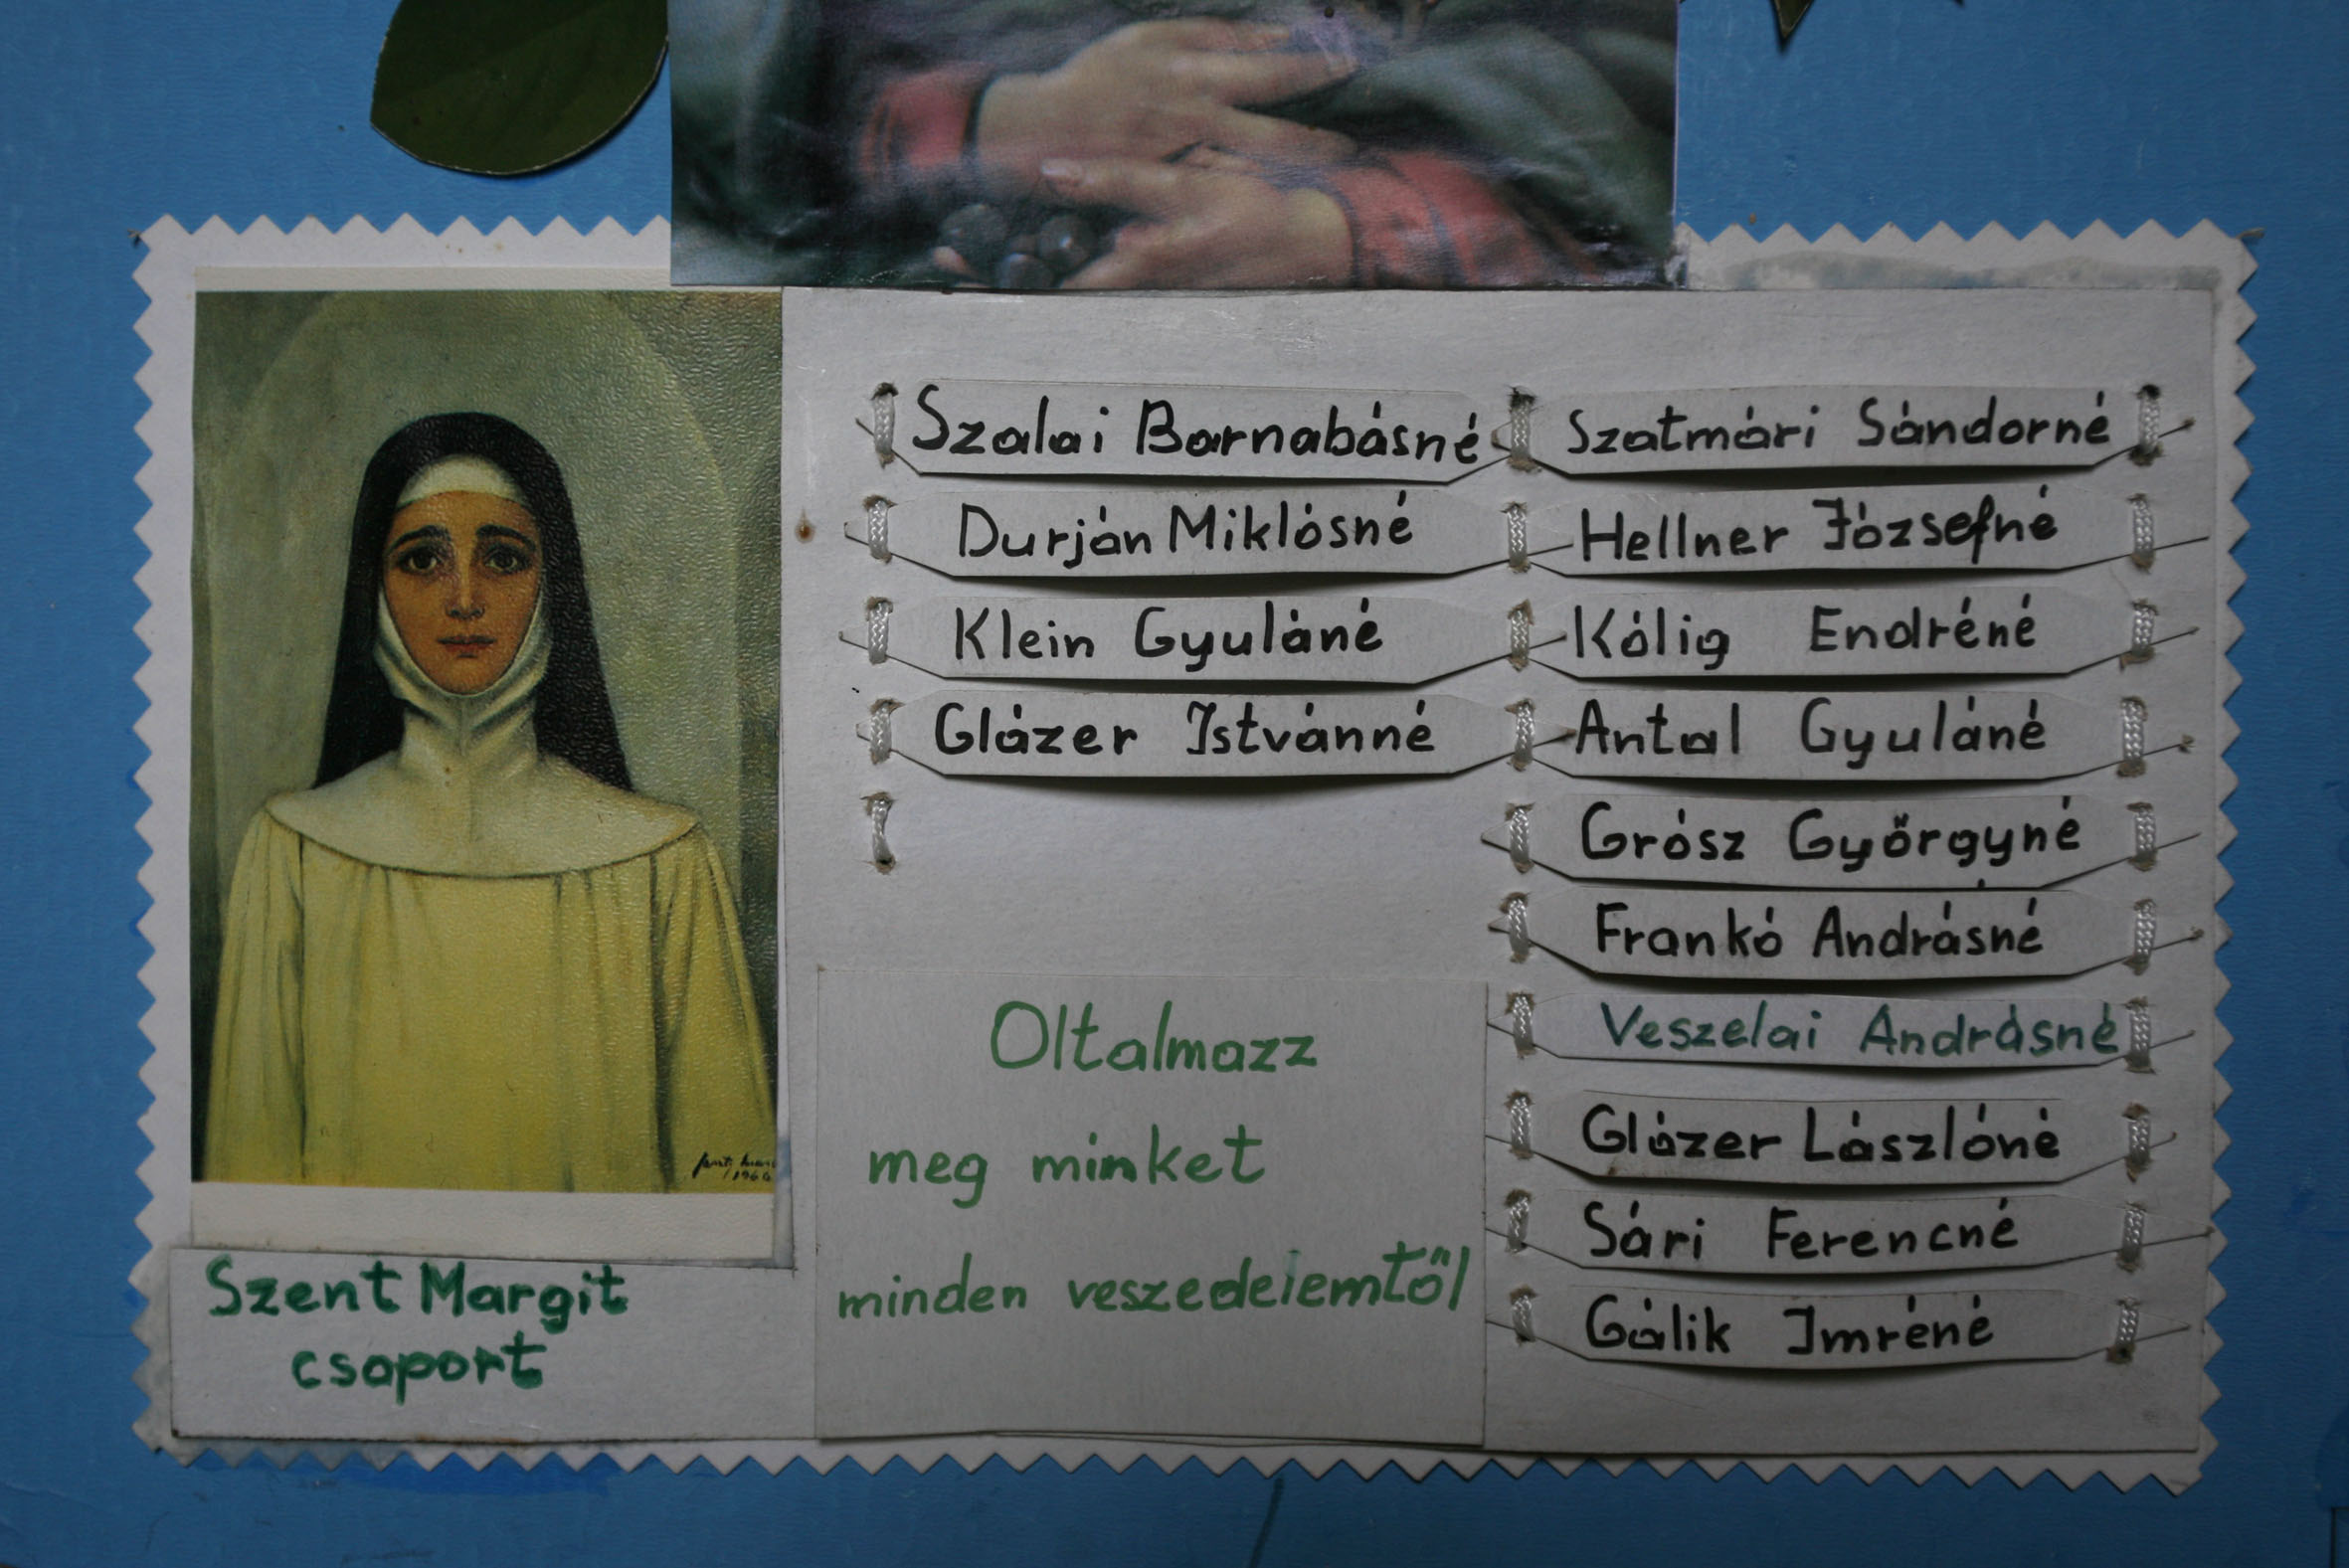 Szalai Barnabásné
Durján Miklósné
Klein Gyuláné
Glázer Istvánné
Szatmári Sándorné
Hellner Józsefné
Kólig Endréné
Antal Gyuláné
Grósz Győrgyné
Frankó Andrásné
Veszelai Andrásné
Glázer Lászlóné
Sári Ferencné
Gálik Imréné
Oltalmazz
meg minket
minden veszedelemtől
Szent Margit
csoport
1960